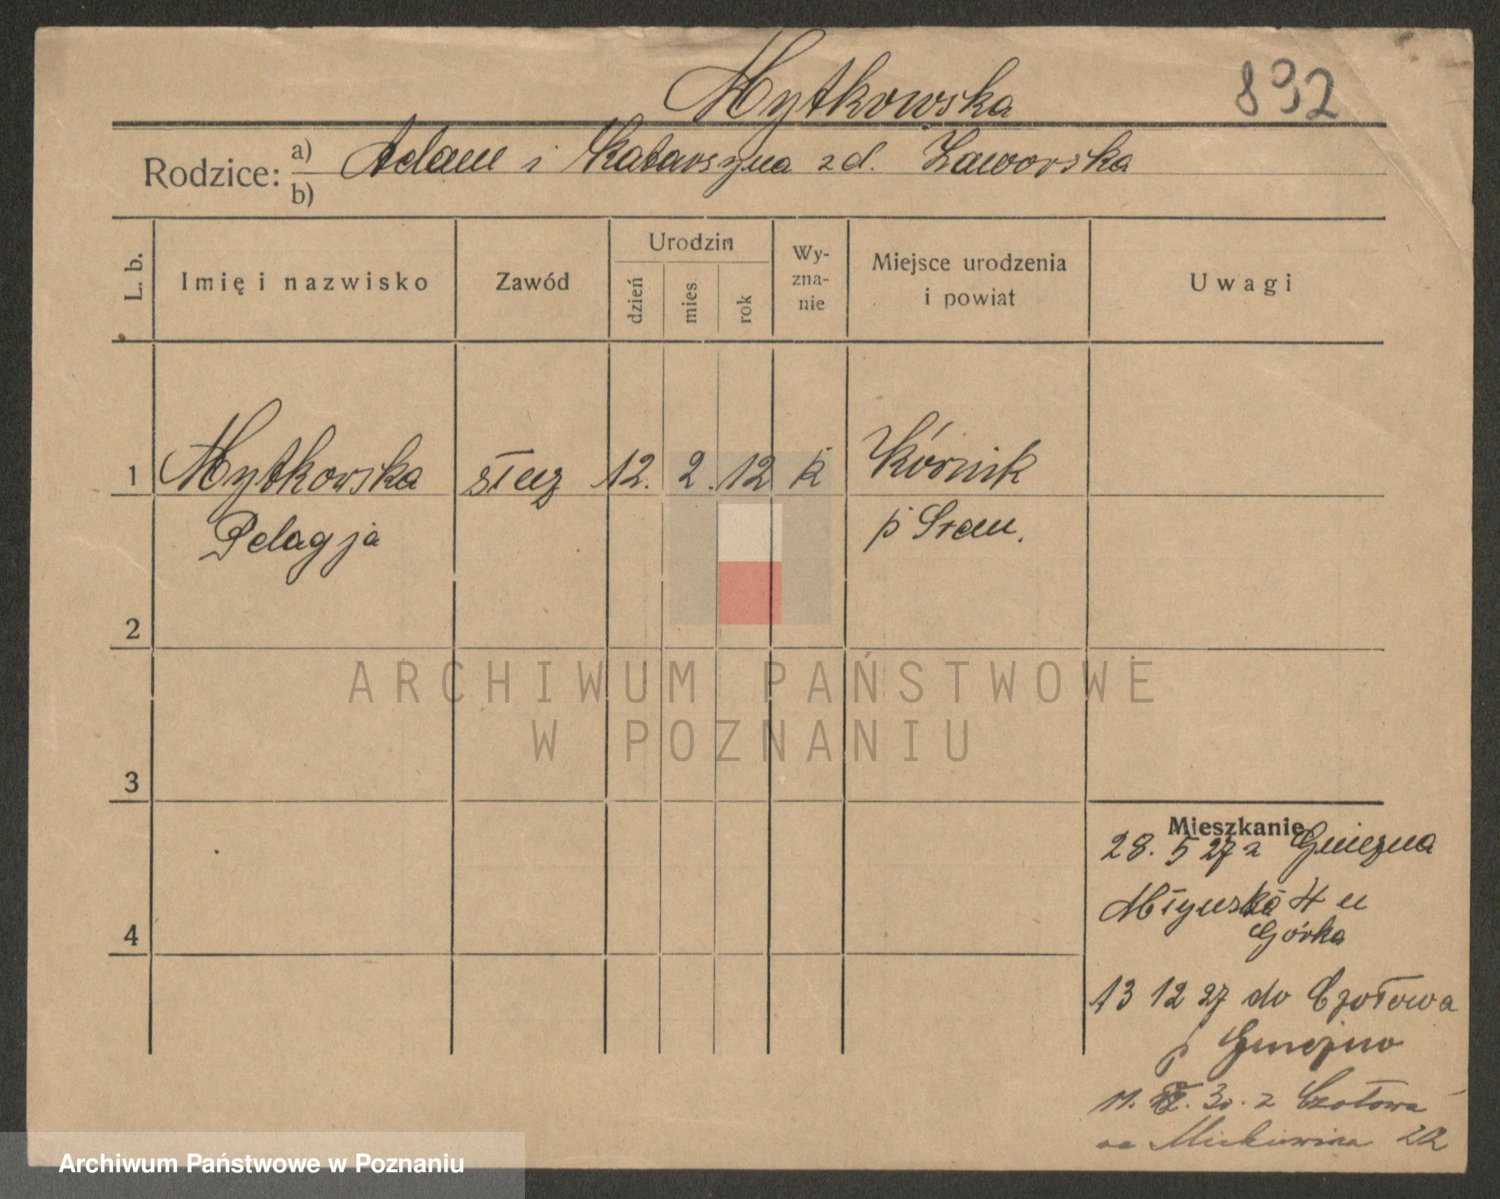 Mytkowska 892
Rodzice: a) Adam i Katarzyna zd. Zaworska
b)
L. b. Imię i nazwisko Zawód Urodzin dzień mies. rok Wy-zna-nie Miejsce urodzenia i powiat Uwagi
1 Mytkowska służ 12. 2. 12 k Kórnik
Pelagja p Śrem.
2
ARCHIWUM PAŃSTWOWE
W POZNANIU
3
Mieszkanie
28. 5 27 z Gniezna
Młyńska 4 u
Górka
4
13 12 27 do Czołowa
p Gniezno
11. 30. z Czołowa
na Mickiewicza 22
Archiwum Państwowe w Poznaniu